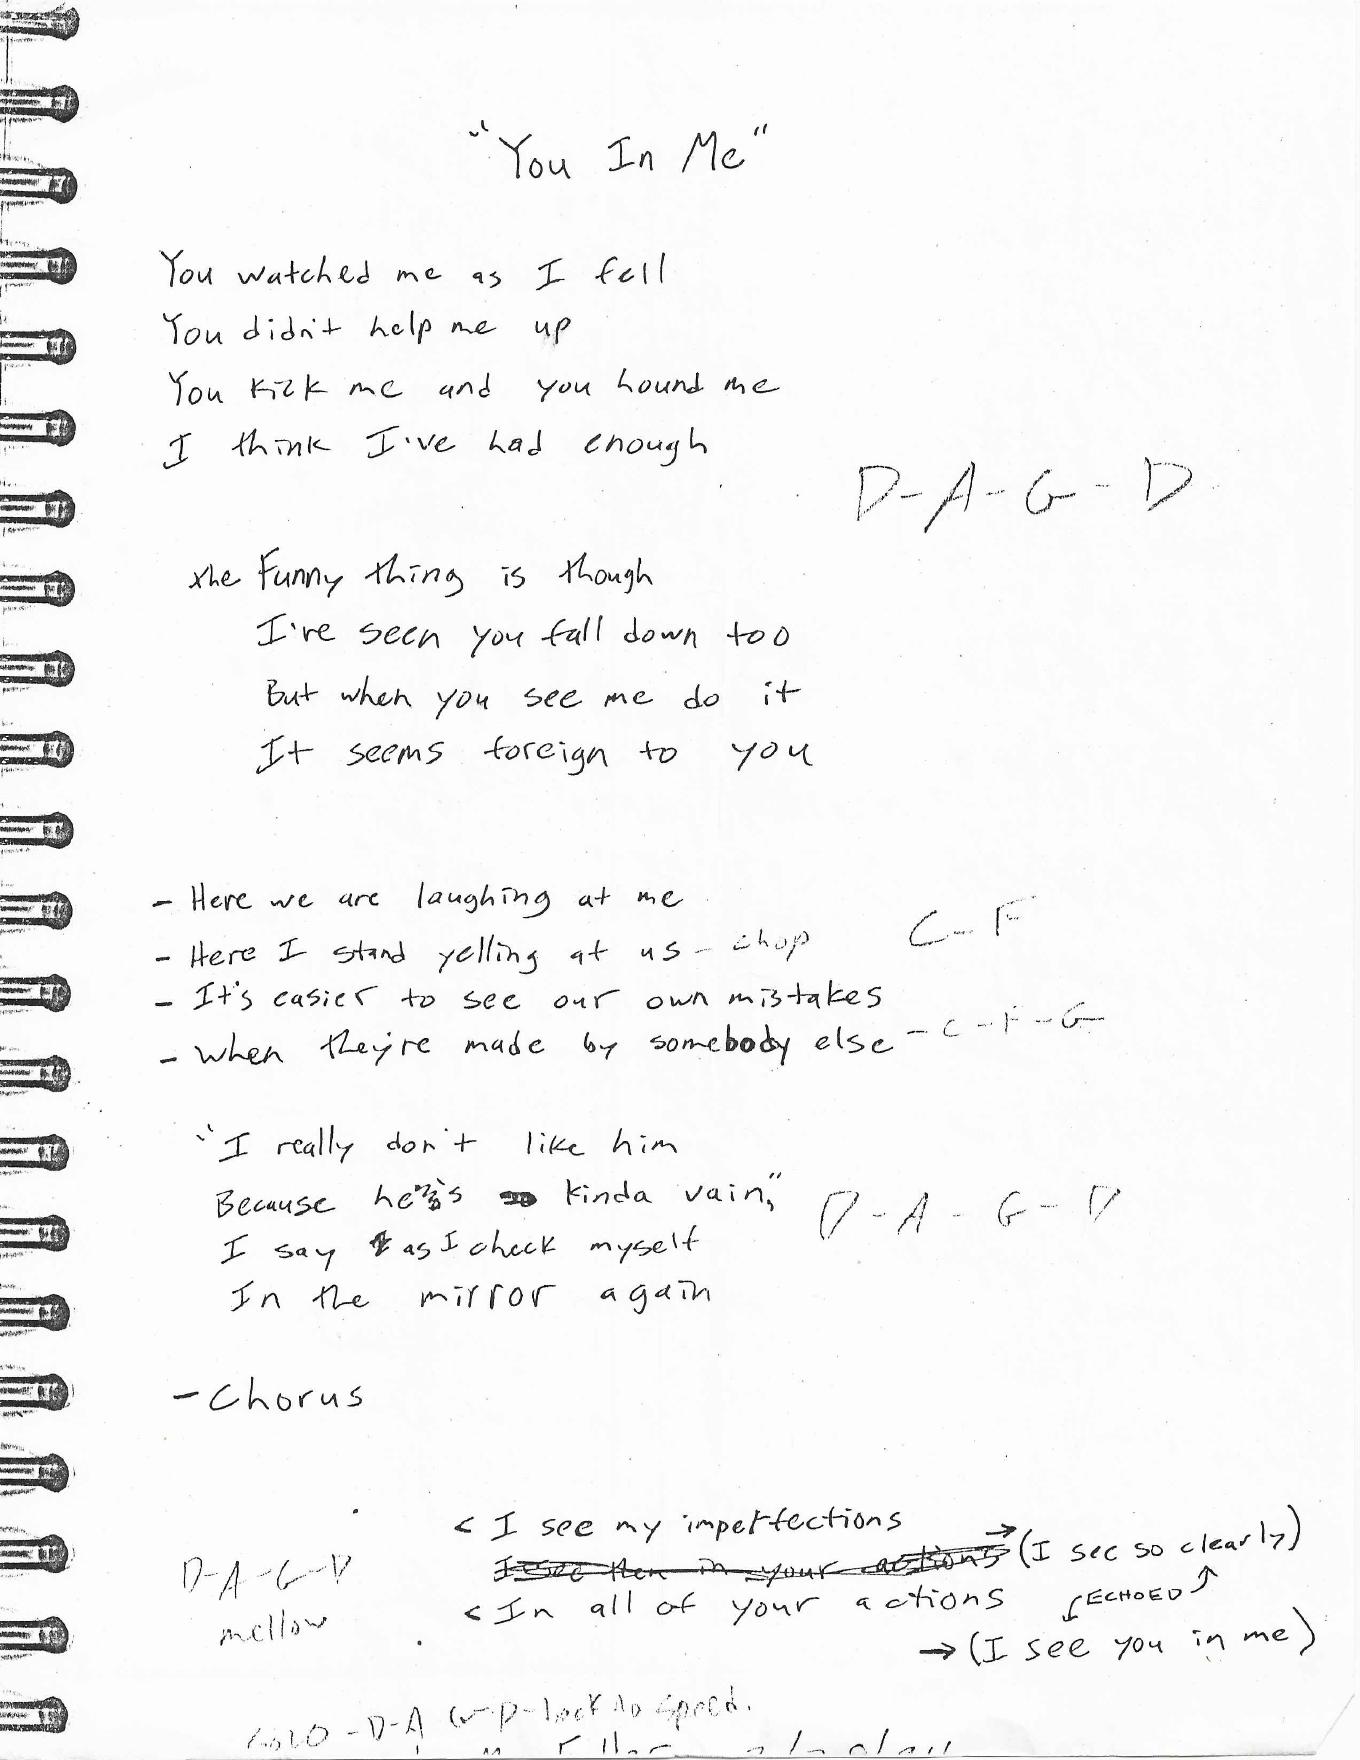 "You In Me"
You watched me as I fell
You didn't help me up
You kick me and you hound me
I think I've had enough
D-A-G-D
the Funny thing is though
I've seen you fall down too
But when you see me do it
It seems foreign to you
- Here we are laughing at me
- Here I stand yelling at us - chop
C-F
- It's easier to see our own mistakes
- When they're made by somebody else - C-F-G
"I really don't like him
Because he's kinda vain,"
D-A-G-D
I say as I check myself
In the mirror again
- Chorus
< I see my imperfections
I see them in your actions → (I see so clearly)
D-A-G-D
< In all of your actions
ECHOED
mellow
→ (I see you in me)
SOLO - D-A G-D - back to speed.